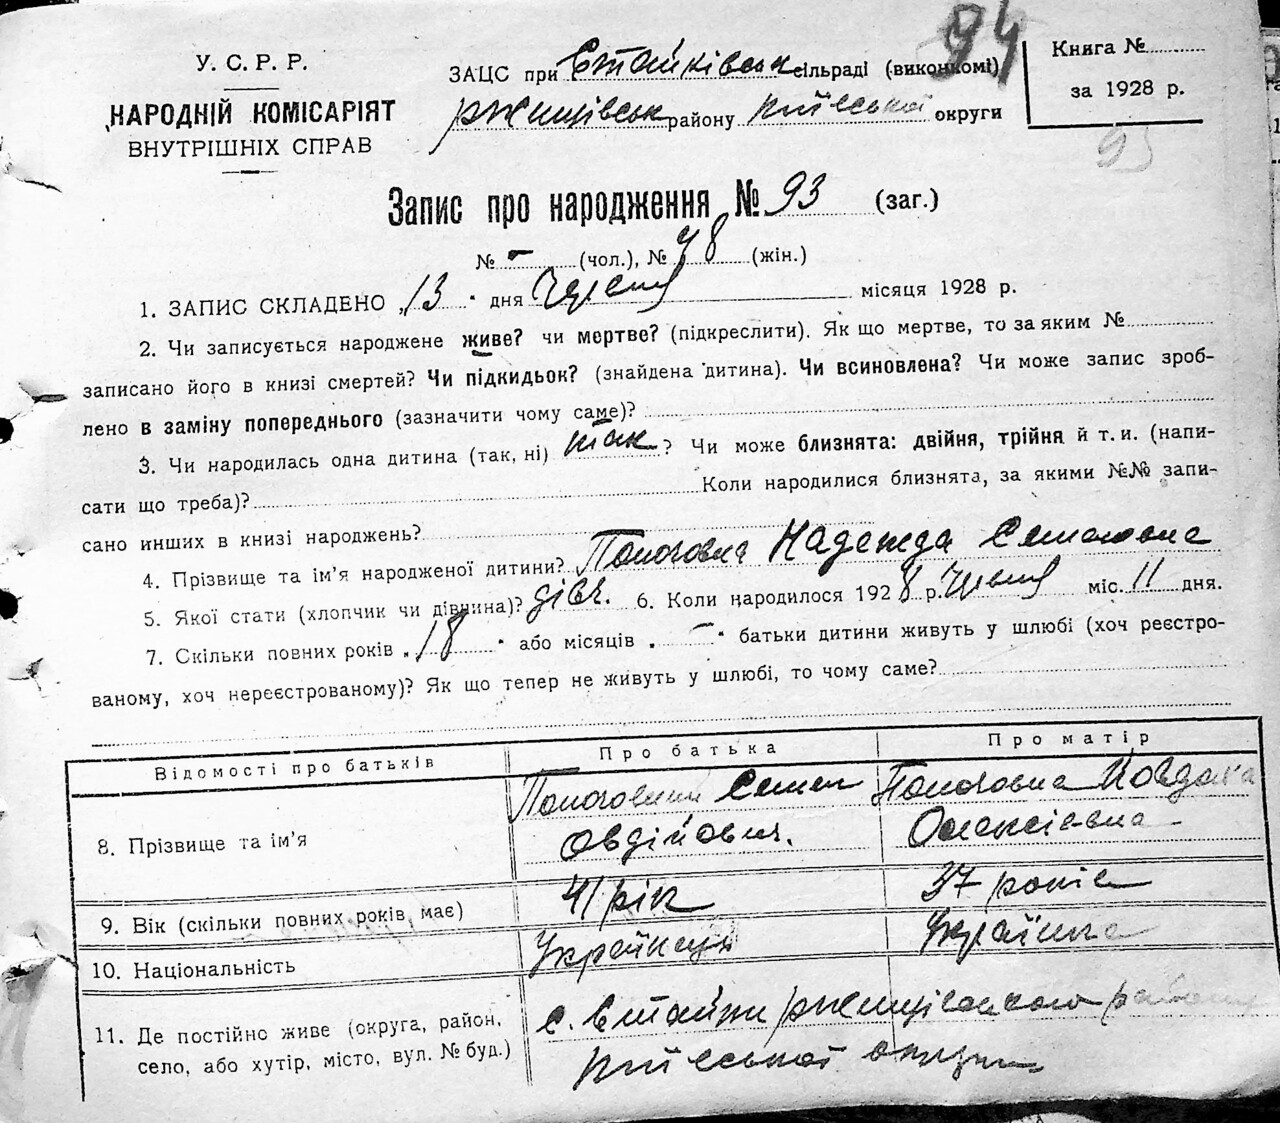 94
У. С. Р. Р.
НАРОДНІЙ КОМІСАРІЯТ
ВНУТРІШНІХ СПРАВ
ЗАЦС при сільраді (виконкомі)
ржищівськ району київської округи
Книга №
за 1928 р.
93
Запис про народження № 93 (заг.)
№ - (чол.), № 48 (жін.)
1. ЗАПИС СКЛАДЕНО „13" дня Червня місяця 1928 р.
2. Чи записується народжене живе? чи мертве? (підкреслити). Як що мертве, то за яким №
записано його в книзі смертей? Чи підкидьок? (знайдена дитина). Чи всиновлена? Чи може запис зроб-
лено в заміну попереднього (зазначити чому саме)?
3. Чи народилась одна дитина (так, ні) так ? Чи може близнята: двійня, трійня й т. и. (напи-
сати що треба)? Коли народилися близнята, за якими №№ запи-
сано инших в книзі народжень?
4. Прізвище та ім'я народженої дитини? Надежда Семеновна
5. Якої статі (хлопчик чи дівчина)? дівч. 6. Коли народилося 1928 р. Червня міс. 11 дня.
7. Скільки повних років „18" або місяців „-" батьки дитини живуть у шлюбі (хоч реєстро-
ваному, хоч нереєстрованому)? Як що тепер не живуть у шлюбі, то чому саме?
Відомості про батьків Про батька Про матір
8. Прізвище та ім'я Семен
Овдійович. Олексієвна
9. Вік (скільки повних років має) 41 рік 37 років
10. Національність Українець Українка
11. Де постійно живе (округа, район, с. ржищівського району
село, або хутір, місто, вул. № буд.) київської округи